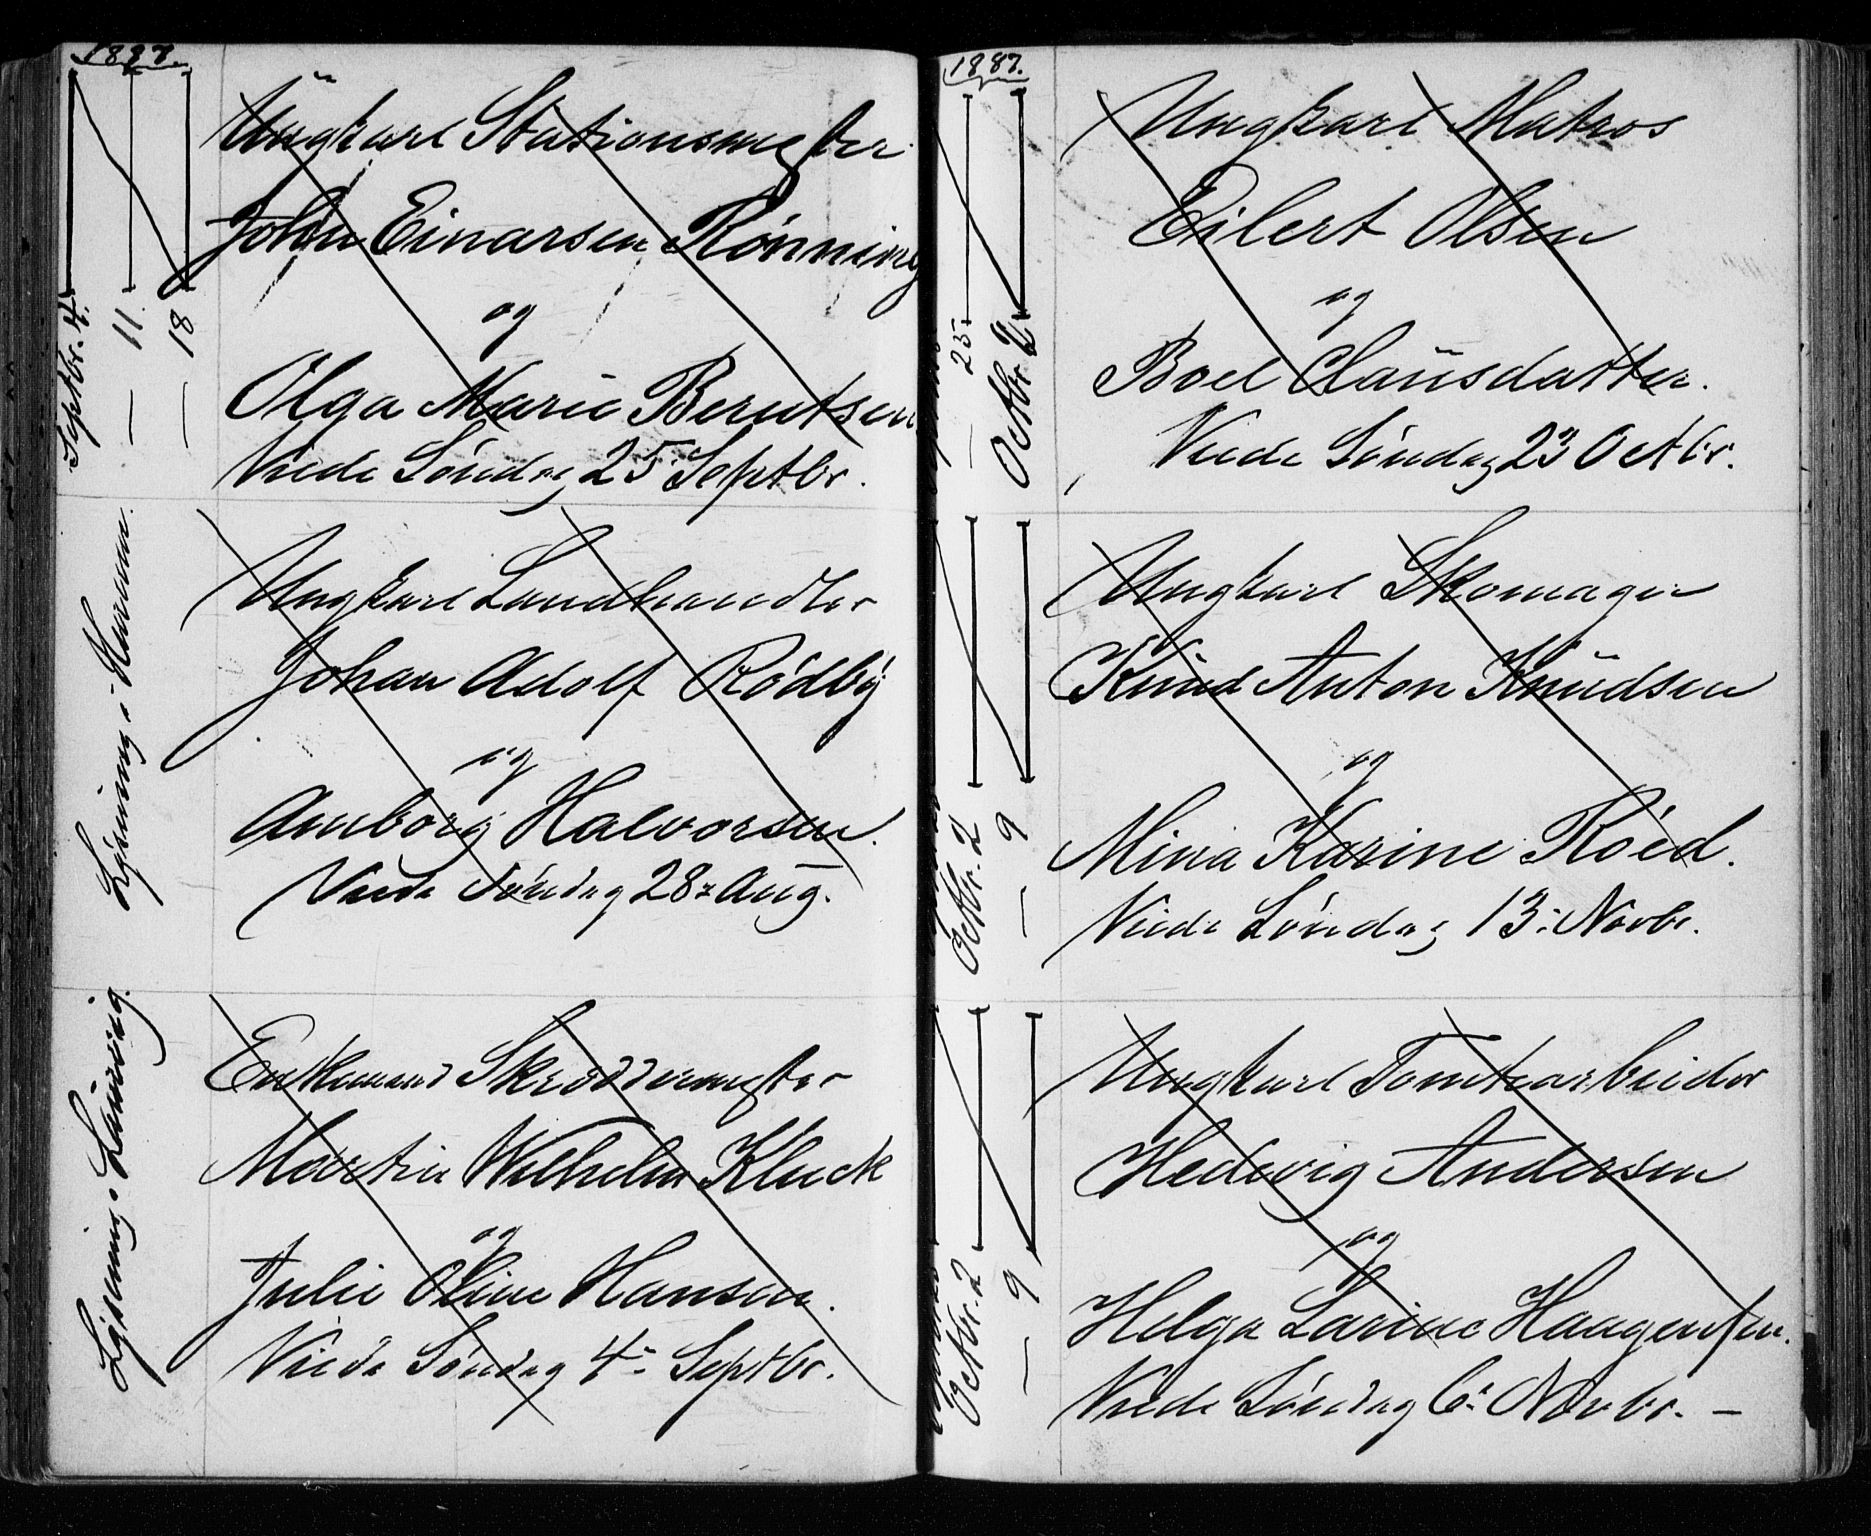 1887.
Septbr. 4.
— 11.
— 18
Ungkarl Stationsmester
Johan Einarsen Rønning
og
Olga Marie Berntsen
Viede Søndag 25 Septbr.
Lysning i
Ungkarl Landhandler
Johan Adolf Rødby
og
Amborg Halvorsen.
Viede Søndag 28: Aug.
Lysning i Laurvig.
Enkemand Skræddermester
Martin Wilhelm Kluck
og
Julie Oline Hansen.
Viede Søndag 4: Septbr.
1887.
— 25.
Octbr. 2
Ungkarl Matros
Eilert Olsen
og
Boel Clausdatter.
Viede Søndag 23 Octbr.
Octbr. 2
— 9
Ungkarl Skomager
Knud Anton Knudsen
og
Mina Karine Röed.
Viede Søndag 13: Novbr.
Octbr. 2
— 9
Ungkarl Tomtearbeider
Hedevig Andersen
og
Helga Larine Haagensen.
Viede Søndag 6: Novbr. —